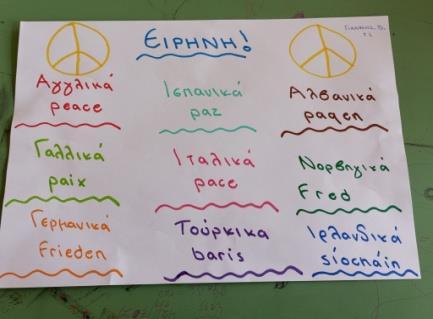 ΕΙΡΗΝΗ!
Αγγλικά
peace
Ισπανικά
paz
Αλβανικά
paqen
Γαλλικά
paix
Ιταλικά
pace
Νορβηγικά
Fred
Γερμανικά
Frieden
Τούρκικα
baris
Ιρλανδικά
síocháin